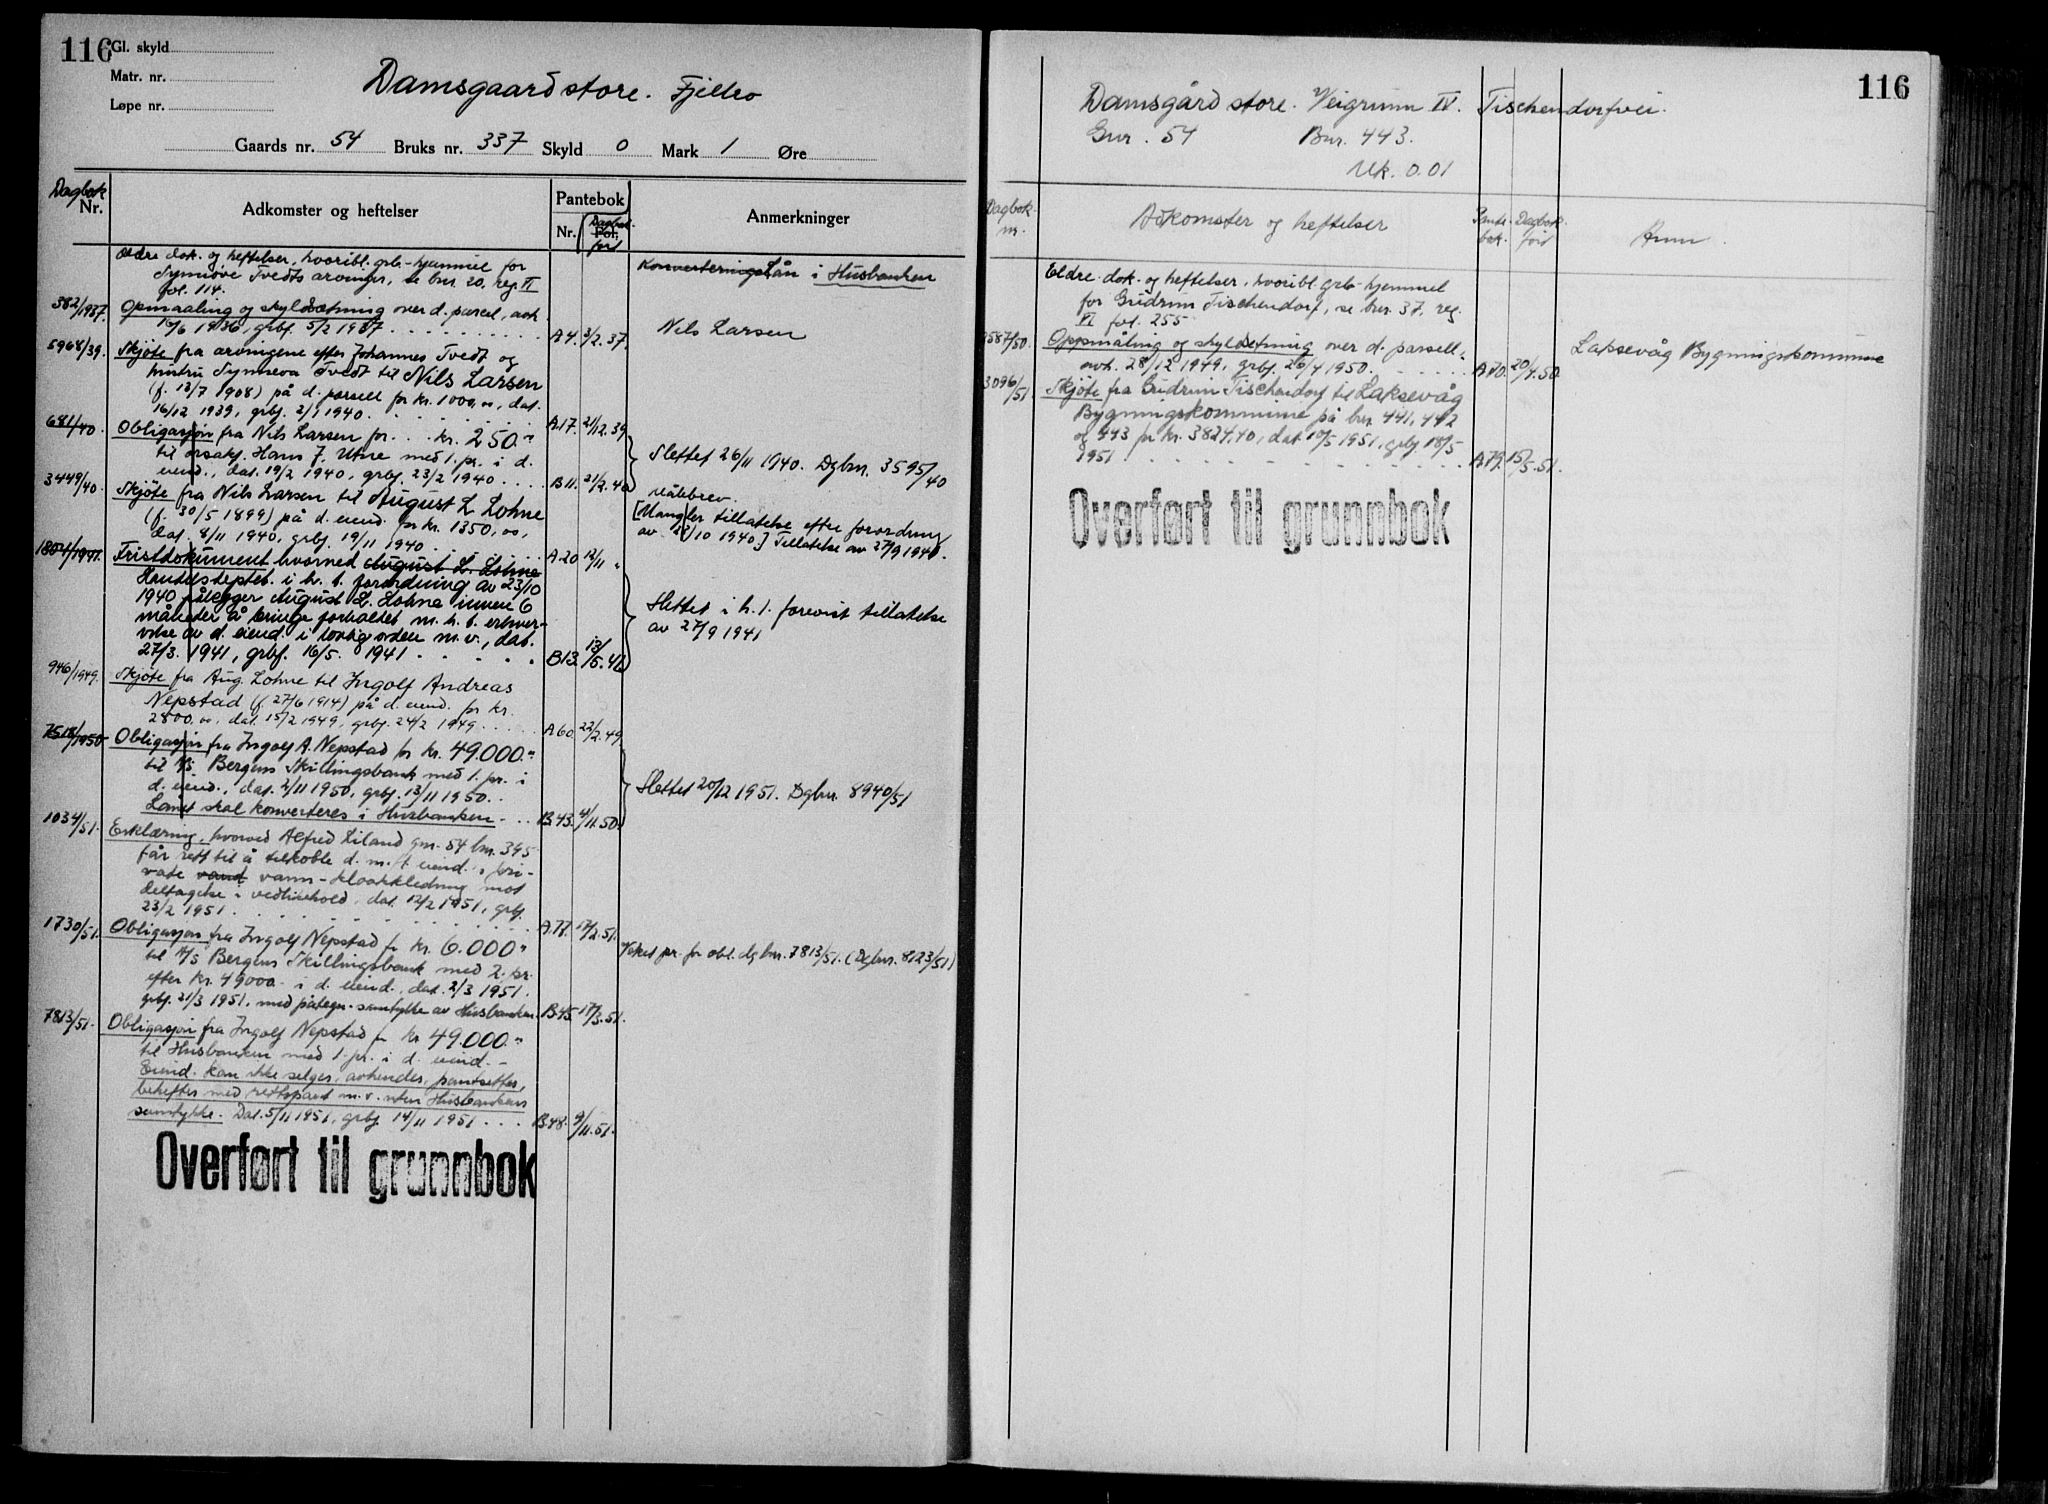 116
Gl. skyld
Matr. nr.
Løpe nr.
Damsgaard store. Fjellro
Gaards nr. 54 Bruks nr. 337 Skyld 0 Mark 1 Øre
Dagbok Nr.
Adkomster og heftelser
Pantebok
Nr. Fol. Dagbok ført
Anmerkninger
Ældre dok. og heftelser, hvoribl. grb.-hjemmel for
Synnøve Tvedts arvinger, se bnr. 20, reg. VI
fol. 114.
Konverteringslån i Husbanken
382/1937. Opmaaling og skyldsætning over d. parcel, avh.
16/6 1936, grbf. 5/2 1937 A 4. 3/2.37.
Nils Larsen
5968/39. Skjøte fra arvingene efter Johannes Tvedt og
hustru Synneva Tvedt til Nils Larsen
(f. 13/7 1908) på d. parsell for kr. 1000,00, dat.
16/12 1939, grbf. 2/1 1940. A17. 21/12.39
681/40. Obligasjon fra Nils Larsen for kr. 250.-
til orsakf. Hans J. Utne med 1. pr. i d.
eiend., dat. 19/2 1940, grbf. 23/2 1940 B11. 21/2.40
Slettet 26/11 1940. Dgbnr. 3595/40
3449/40. Skjøte fra Nils Larsen til August L. Lohne
(f. 30/5 1899) på d. eiend. for kr. 1350,00,
dat. 8/11 1940, grbf. 19/11 1940 A20 12/11 "
Målebrev.
[Mangler tillatelse efter forordning
av 23/10 1940] Tillatelse av 27/9 1941.
1804/1941. Fristdokument hvorved August L. Lohne
Handelsdeptet. i h. t. forordning av 23/10
1940 pålegger August L. Lohne innen 6
måneder å bringe forholdet m. h. t. erhver-
velse av d. eiend. i lovlig orden m. v., dat.
27/3. 1941, grbf. 16/5. 1941 B13. 13/5.41
Slettet i h. t. forevist tillatelse
av 27/9 1941
946/1949. Skjøte fra Aug. Lohne til Ingolf Andreas
Nepstad (f. 27/6 1914) på d. eiend. for kr.
2800.00, dat. 15/2 1949, grbf. 24/2 1949 A60. 22/2.49
7518/1950 Obligasjon fra Ingolf A. Nepstad for kr. 49.000.-
til A/S Bergens Skillingsbank med 1. pr. i
d. eiend., dat. 2/11 1950, grbf. 13/11 1950.
Lånet skal konverteres i Husbanken. B.43. 4/11.50.
Slettet 20/12 1951. Dgbnr. 8940/51
1034/51. Erklæring, hvorved Alfred Liland gnr. 54 bnr. 395
får rett til å tilkoble d. m. fl. eiend.s pri-
vate vand vann-kloakkledning mot
deltagelse i vedlikehold, dat. 12/2 1951, grbf.
23/2 1951. A.77. 17/2.51.
1730/51. Obligasjon fra Ingolf Nepstad for kr. 6.000.-
til A/S Bergens Skillingsbank med 2. pr.
efter kr. 49000.- i d. eiend., dat. 2/3 1951.
grbf. 21/3 1951, med påtegn. samtykke av Husbanken. B.45. 17/3.51.
Veket pr. for obl. dgbnr. 7813/51. (Dgbnr. 8123/51)
7813/51. Obligasjon fra Ingolf Nepstad for kr 49.000.-
til Husbanken med 1. pr. i d. eiend.-
Eiend. kan ikke selges, avhendes, pantsettes,
beheftes med rettspant m.v. uten Husbankens
samtykke. Dat. 5/11 1951, grbf. 14/11 1951 B.48. 9/11.51.
Overført til grunnbok
116
Damsgård store. Veigrunn IV. Tischendorfvei.
Gnr. 54 Bnr. 443.
Mk. 0.01
Dagbok nr.
Adkomster og heftelser
Pantebok. Dagbok ført
Anm.
Eldre dok. og heftelser, hvoribl. grb-hjemmel
for Gudrun Tischendorf, se bnr. 37, reg.
VI fol. 255
2587/50. Oppmåling og skyldsetning over d. parsell
avh. 28/12 1949, grbf. 26/4 1950. A70. 20/4.50
Laksevåg Bygningskommune
3096/51 Skjøte fra Gudrun Tischendorf til Laksevåg
Bygningskommune på bnr. 441, 442
og 443 for kr. 3824,40, dat. 10/5 1951, grbf. 18/5
1951 A79. 15/5.51.
Overført til grunnbok